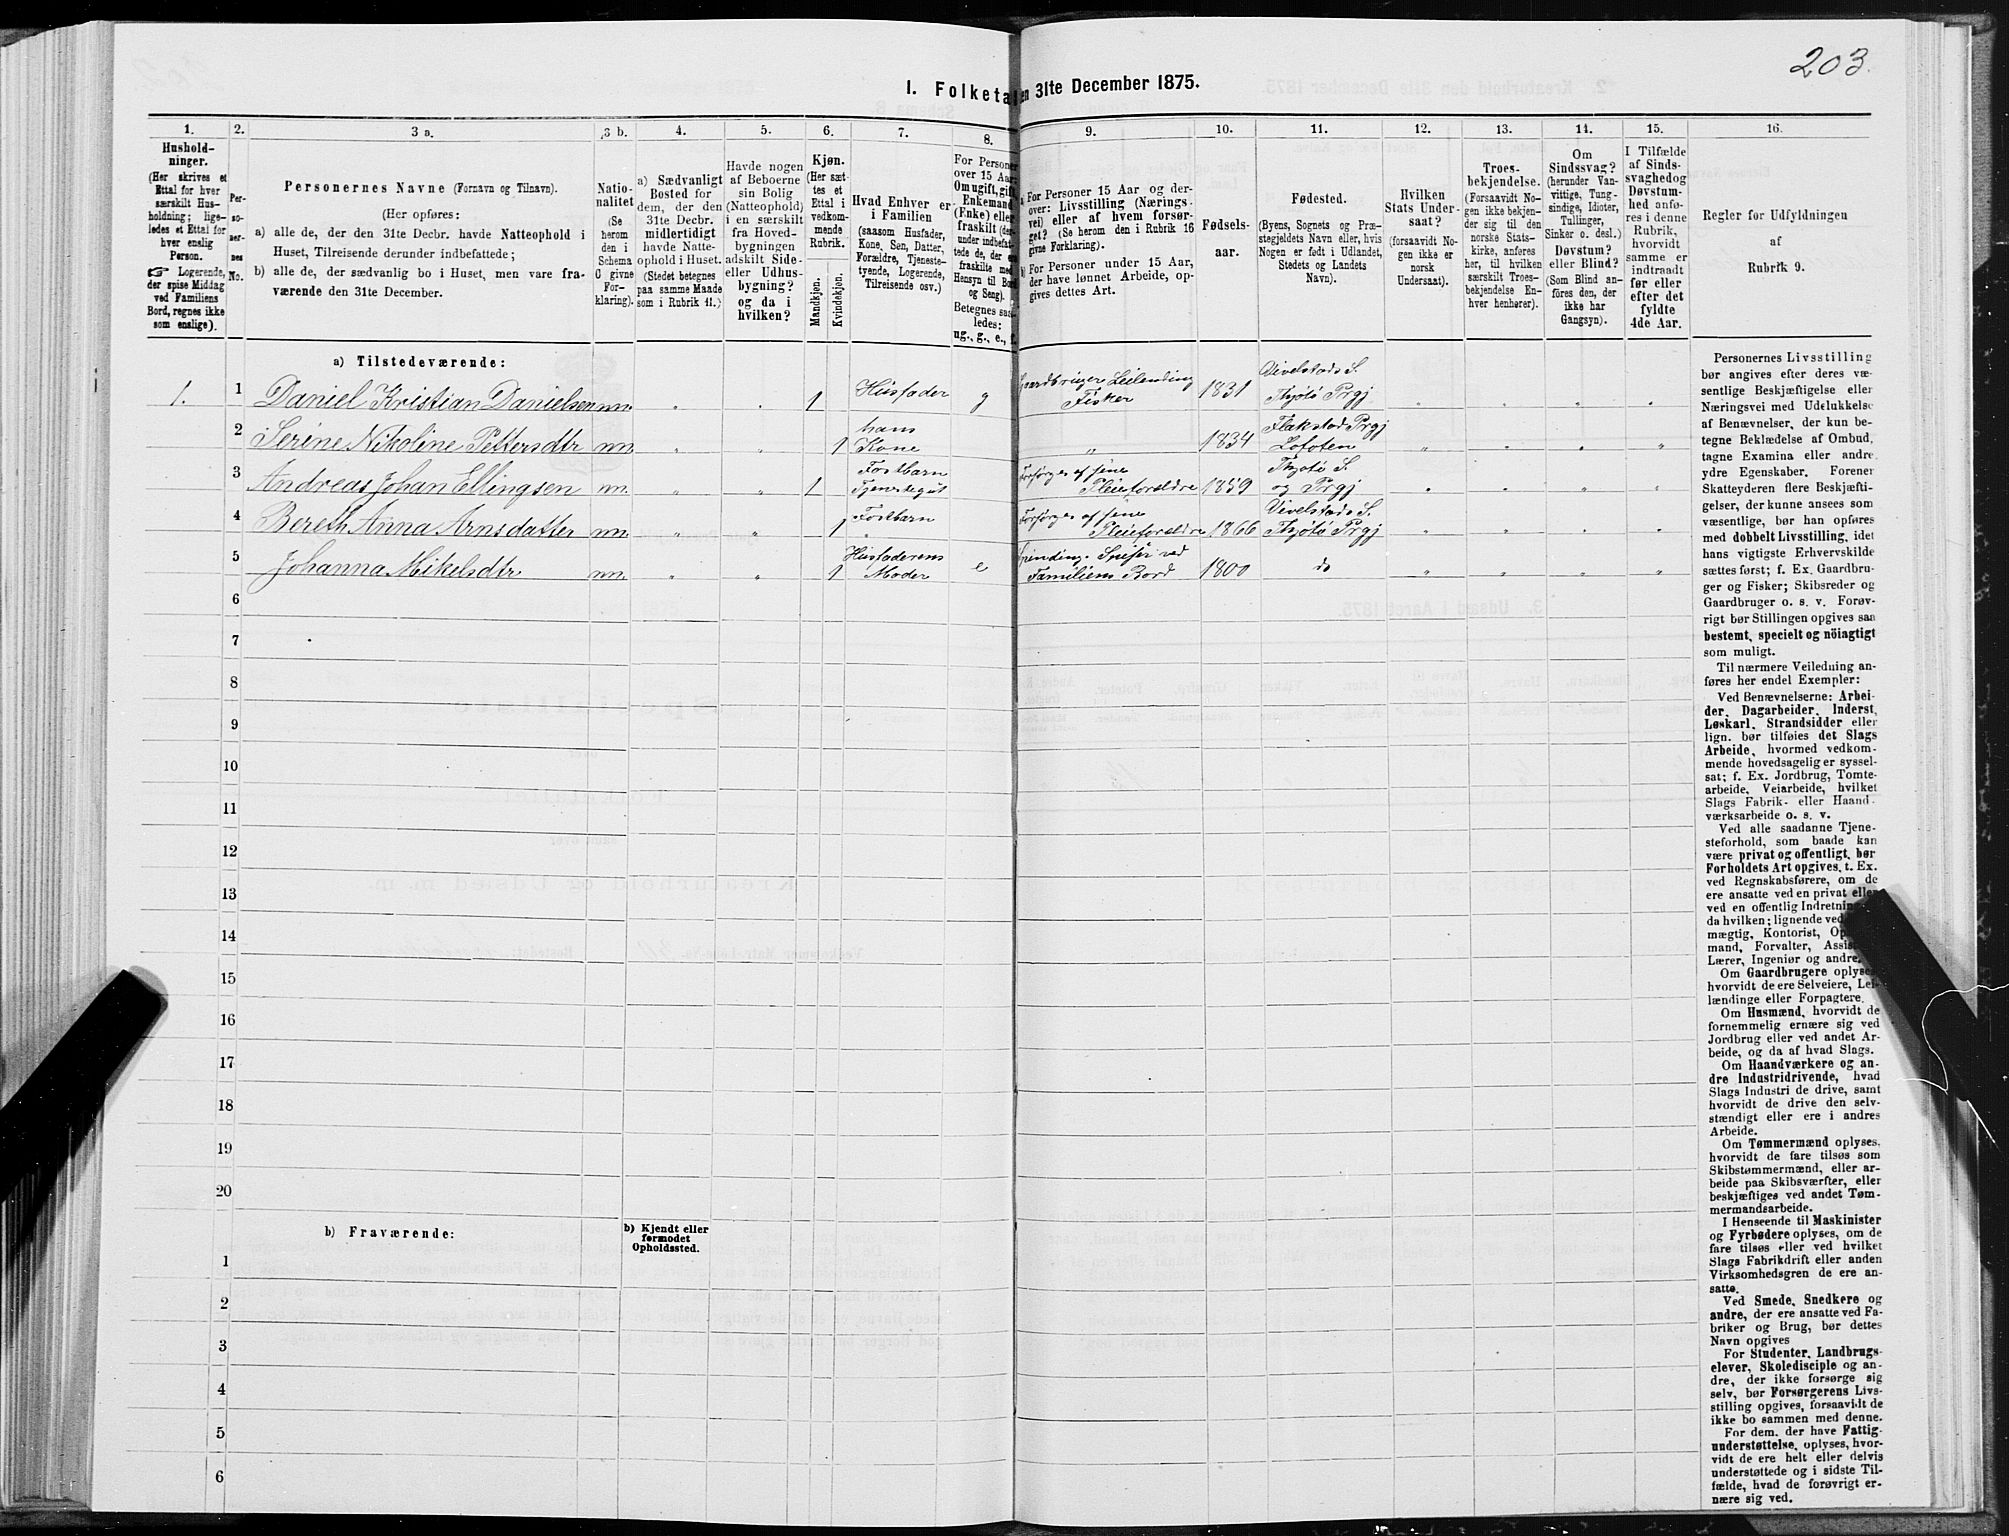 203.
1. Folketal den 31te December 1875.
1.
2.
3 a.
3 b.
4.
5.
6.
7.
8.
9.
10.
11.
12.
13.
14.
15.
16.
Hushold-
ninger.
(Her skrives et
Ettal for hver
særskilt Hus-
holdning; lige-
ledes et Ettal for
hver enslig
Person.
☞ Logerende,
der spise Middag
ved Familiens
Bord, regnes ikke
som enslige).
Per-
so-
ner-
nes
No.
Personernes Navne (Fornavn og Tilnavn).
(Her opføres:
a) alle de, der den 31te Decbr. havde Natteophold i
Huset, Tilreisende derunder indbefattede;
b) alle de, der sædvanlig bo i Huset, men vare fra-
værende den 31te December.
Natio-
nalitet
(Se
herom
den i
Schema
C givne
For-
klaring).
a) Sædvanligt
Bosted for
dem, der den
31te Decbr.
midlertidigt
havde Natte-
ophold i Huset.
(Stedet betegnes
paa samme Maade
som i Rubrik 11.)
Havde nogen
af Beboerne
sin Bolig
(Natteophold)
i en særskilt
fra Hoved-
bygningen
adskilt Side-
eller Udhus-
bygning?
og da i
hvilken?
Kjøn.
(Her sæt-
tes et
Ettal i
vedkom-
mende
Rubrik.
Mandkjøn.
Kvindekjøn.
Hvad Enhver er
i Familien
(saasom Husfader,
Kone, Søn, Datter,
Forældre, Tjeneste-
tyende, Logerende,
Tilreisende osv.)
For Personer
over 15 Aar:
Om ugift, gift,
Enkemand
(Enke) eller
fraskilt (der-
under indbefat-
tede de, der ere
fraskilte med
Hensyn til Bord
og Seng).
Betegnes saa-
ledes:
ug., g., e., f.
a) For Personer 15 Aar og der-
over: Livsstilling (Nærings-
vei) eller af hvem forsør-
get? (Se herom den i Rubrik 16
givne Forklaring).
b) For Personer under 15 Aar,
der have lønnet Arbeide, op-
gives dettes Art.
Fødsels-
aar.
Fødested.
(Byens, Sognets og Præ-
stegjeldets Navn eller, hvis
Nogen er født i Udlandet,
Stedets og Landets
Navn).
Hvilken
Stats Under-
saat?
(forsaavidt No-
gen ikke er
norsk
Undersaat).
Troes-
bekjendelse.
(Forsaavidt No-
gen ikke bekjen-
der sig til den
norske Stats-
kirke, anføres
her, til hvilken
særskilt Troes-
bekjendelse En-
hver henhører).
Om
Sindssvag?
(herunder Van-
vittige, Tung-
sindige, Idioter,
Tullinger,
Sinker o. desl.)
Døvstum?
eller Blind?
(Som Blind an-
føres den, der
ikke har
Gangsyn).
I Tilfælde
af Sinds-
svaghed og
Døvstum-
hed anfø-
res i denne
Rubrik,
hvorvidt
samme er
indtraadt
før eller
efter det
fyldte
4de Aar.
Regler for Udfyldningen
af
Rubrik 9.
a) Tilstedeværende:
1. 1 Daniel Kristian Danielsen nn. „ „ 1 Husfader g Gaardbruger Leilending Fisker 1831 Vivelstads S. Thjøtø Prgj „ „ „ „
2 Serine Nikoline Pettersdtr nn. „ „ 1 hans Kone „ 1834 Flakstad Prgj Lofoten „ „ „ „
3 Andreas Johan Ellingsen nn. „ „ 1 Fostbarn Tjenstegut Forsørges af sine Pleieforældre 1859 Thjøtø S. og Prgj „ „ „ „
4 Bereth Anna Arnsdatter nn. „ „ 1 Fostbarn „ Forsørges af sine Pleieforældre 1866 Vivelstads S. Thjøtø Prgj „ „ „ „
5 Johanna Mikelsdtr nn. „ „ 1 Husfaderens Moder e Spinding. Spiser ved Familiens Bord 1800 do „ „ „ „
6
7
8
9
10
11
12
13
14
15
16
17
18
19
20
b) Fraværende:
b) Kjendt eller
formodet
Opholdssted.
1
2
3
4
5
6
Personernes Livsstilling
bør angives efter deres væ-
sentlige Beskjæftigelse eller
Næringsvei med Udelukkelse
af Benævnelser, der kun be-
tegne Beklædelse af Ombud,
tagne Examina eller andre
ydre Egenskaber. Forener
Skatteyderen flere Beskjæfti-
gelser, der kunne ansees som
væsentlige, bør han opføres
med dobbelt Livsstilling, idet
hans vigtigste Erhvervskilde
sættes først; f. Ex. Gaardbru-
ger og Fisker; Skibsreder og
Gaardbruger o. s. v. Forøv-
rigt bør Stillingen opgives saa
bestemt, specielt og nöiagtigt
som muligt.
Til nærmere Veiledning an-
føres her endel Exempler:
Ved Benævnelserne: Arbei-
der, Dagarbeider, Inderst,
Løskarl, Strandsidder eller
lign. bør tilføies det Slags
Arbeide, hvormed vedkom-
mende hovedsagelig er syssel-
sat; f. Ex. Jordbrug, Tomte-
arbeide, Veiarbeide, hvilket
Slags Fabrik- eller Haand-
værksarbeide o. s. v.
Ved alle saadanne Tjene-
steforhold, som baade kan
være privat og offentligt, bør
Forholdets Art opgives, t. Ex.
ved Regnskabsførere, om de
ere ansatte ved en privat eller
ved en offentlig Indretning
da hvilken; lignende ved
mægtig, Kontorist, Op
mand, Forvalter, Assis
Lærer, Ingeniør og andre.
Om Gaardbrugere oplyses,
hvorvidt de ere Selveiere, Lei-
lændinge eller Forpagtere.
Om Husmænd, hvorvidt de
fornemmelig ernære sig ved
Jordbrug eller ved andet Ar-
beide, og da af hvad Slags.
Om Haandværkere og an-
dre Industridrivende, hvad
Slags Industri de drive, samt
hvorvidt de drive den selv-
stændigt eller ere i andres
Arbeide.
Om Tømmermænd oplyses,
hvorvidt de fare tilsøs som
Skibstømmermænd, eller ar-
beide paa Skibsværfter, eller
beskjæftiges ved andet Tøm-
mermandsarbeide.
I Henseende til Maskinister
og Fyrbødere oplyses, om de
fare tilsøs eller ved hvilket
Slags Fabrikdrift eller anden
Virksomhedsgren de ere an-
satte.
Ved Smede, Snedkere og
andre, der ere ansatte ved Fa-
briker og Brug, bør dettes
Navn opgives
For Studenter, Landbrugs-
elever, Skoledisciple og an-
dre, der ikke forsørge sig
selv, bør Forsørgerens Livs-
stilling opgives, forsaavidt de
ikke bo sammen med denne.
For dem, der have Fattig-
understøttelse, oplyses, hvor-
vidt de ere helt eller delvis
understøttede og i sidste Til-
fælde, hvad de forøvrigt er-
nære sig ved.